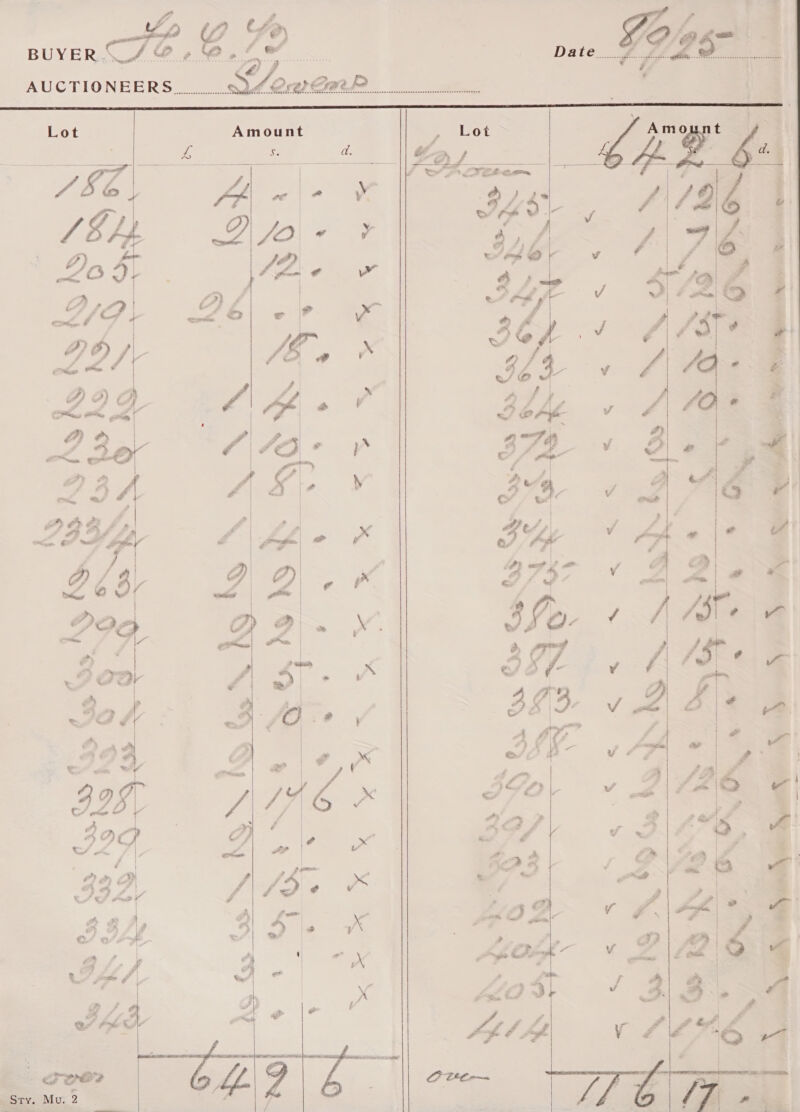 BUYER
Date
AUCTIONEERS
Lot Amount
£ s. d.
186 4 - - x
184 2 10 - x
205 12 - x
219 26 - - x
221 18 - x
222 1 4 - x
230 1 10 - x
231 1 8 - x
233/4 1 4 - x
263 2 2 - x
299 2 2 - x
300 1 5 - x
301 3 10 - x
323 2 - - x
328 1 17 6 x
329 2 - - x
332 1 15 - x
334 3 5 - x
341 3 - - x
343 2 - - x
over 64 2 6
Sty. Mu. 2
Lot Amount
£ d.
64 2 6
345 1 12 6
346 1 7 6
347 5 12 6
361 1 15 -
363 1 10 -
364 1 10 -
372 3 - -
373 2 7 6
374 4 - -
375 2 2 -
380 1 15 -
381 1 15 -
383 2 8 -
388 4 - -
390 2 12 6
391 3 17 6
393 2 12 6
402 1 4 -
404 2 12 6
405 3 3 -
414 1 17 6
over 116 17 -